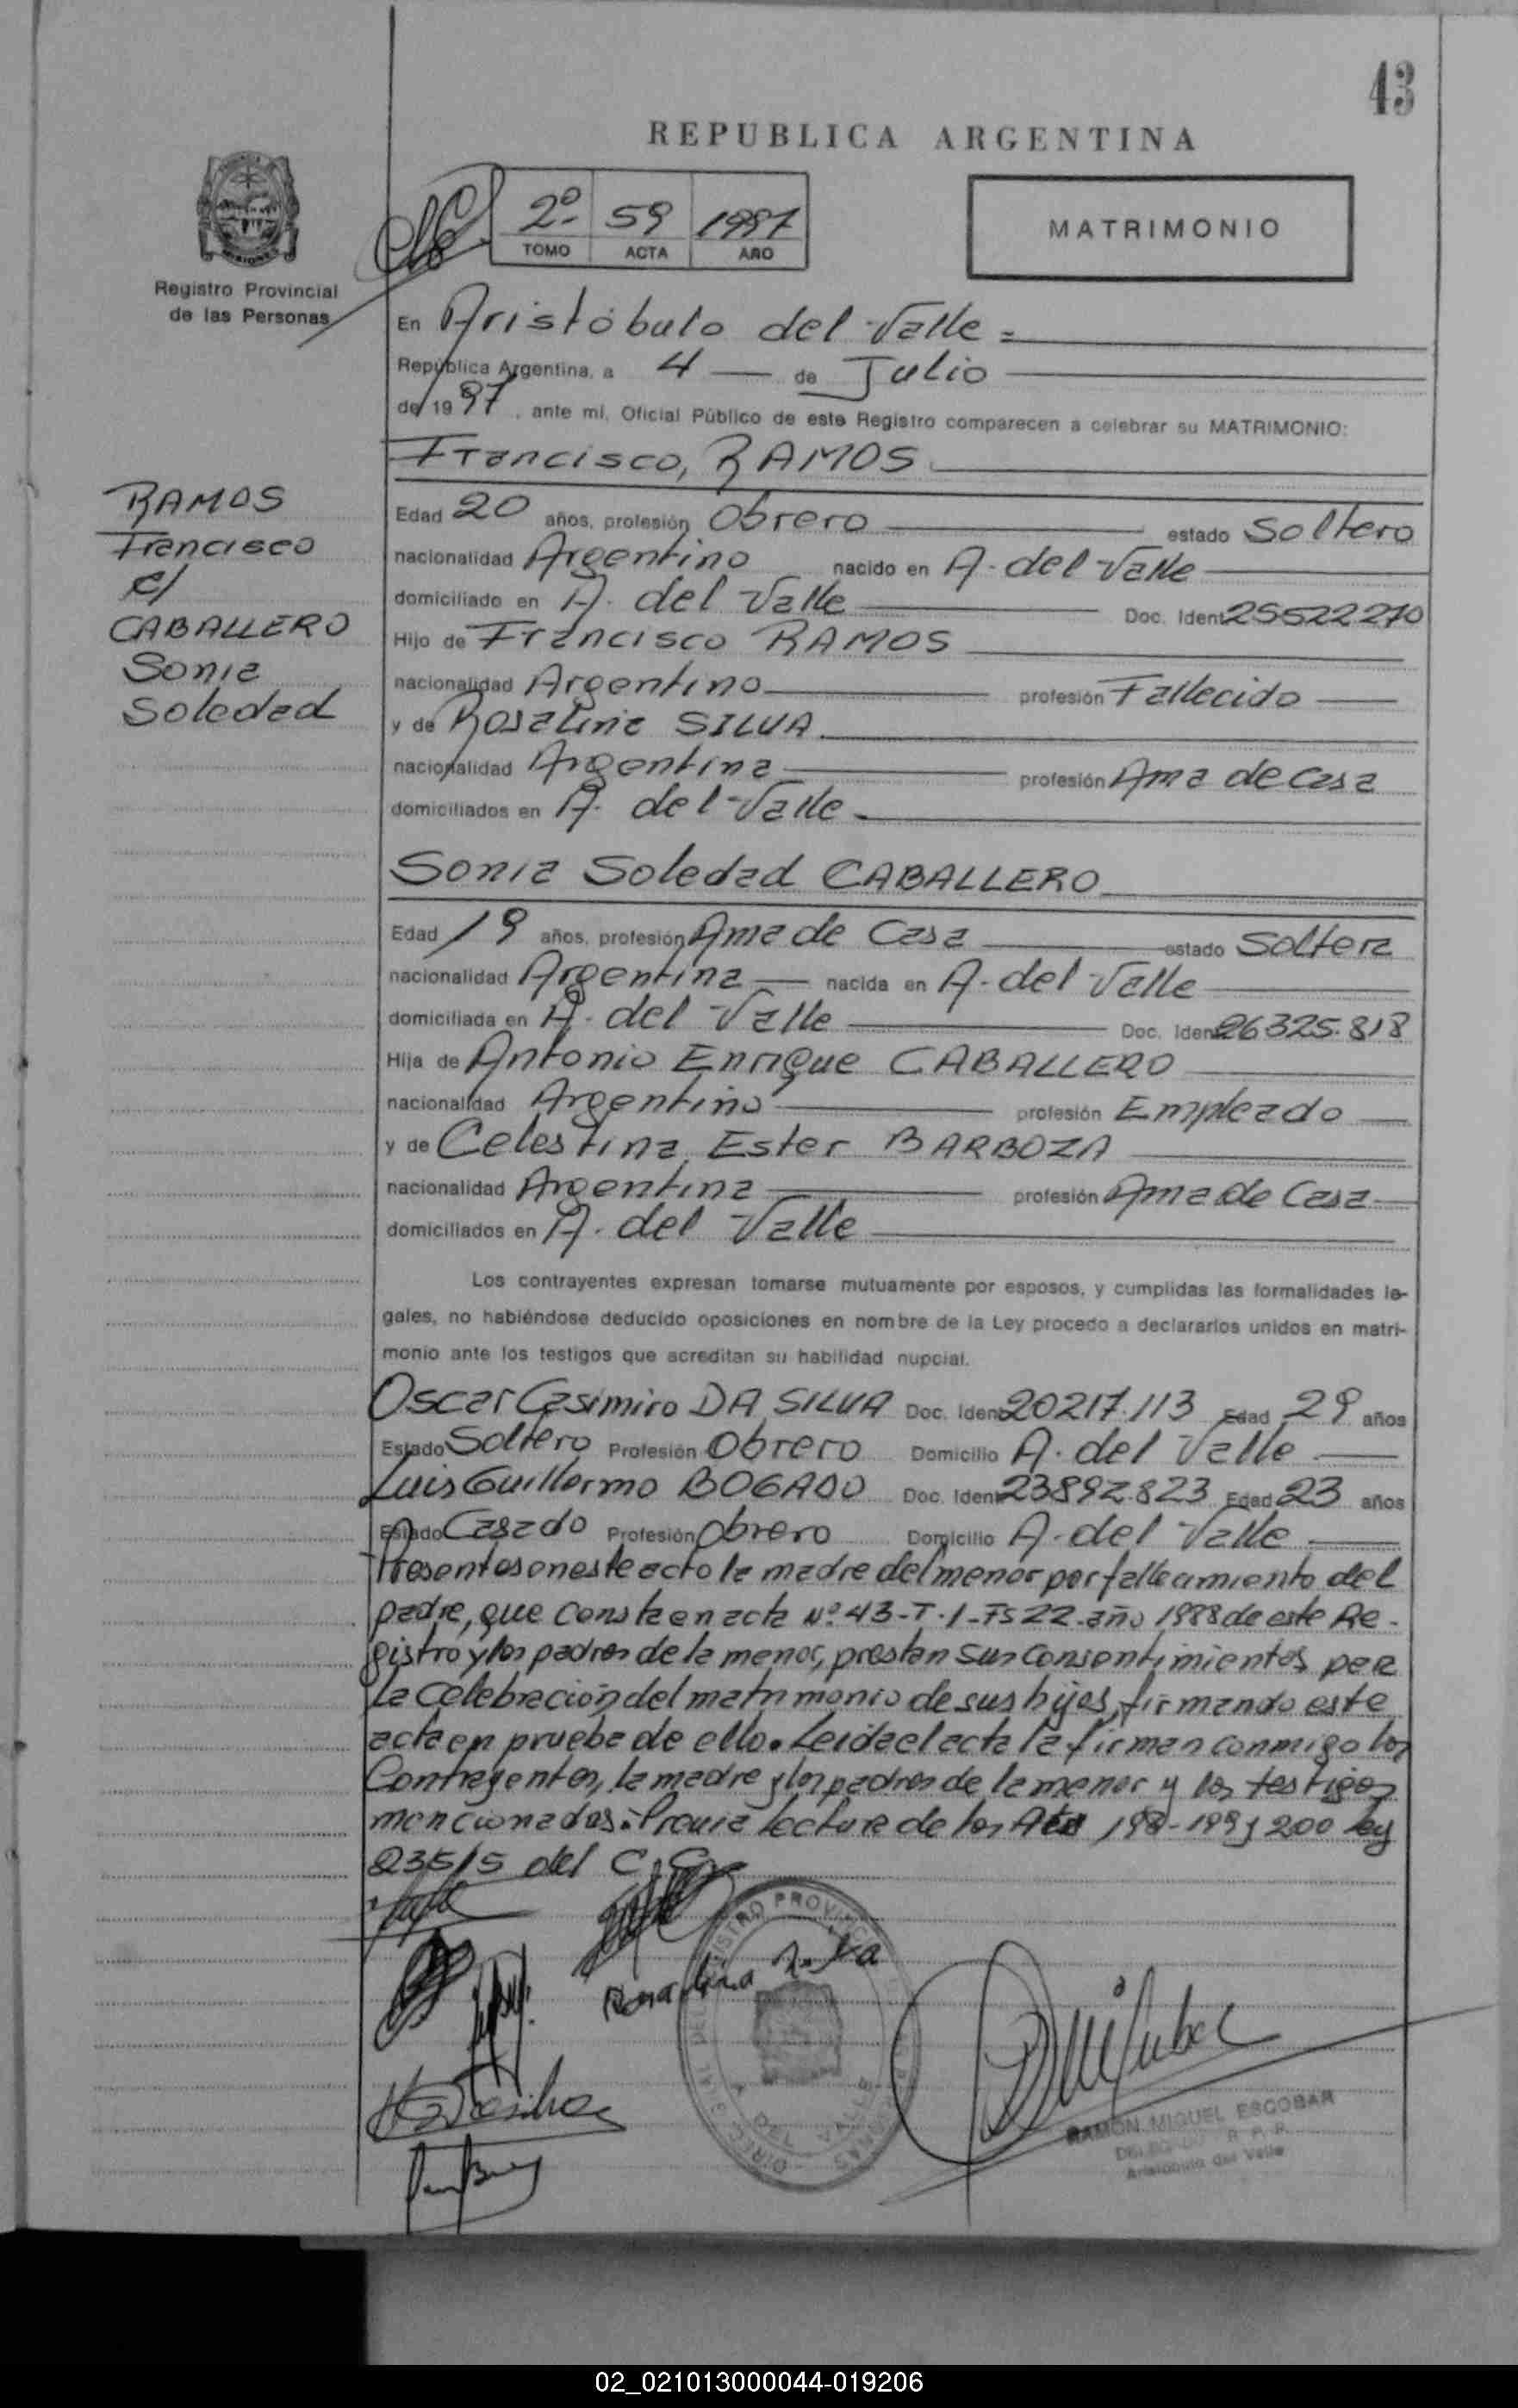 43
REPUBLICA ARGENTINA
2º 59 1997
TOMO ACTA AÑO
MATRIMONIO
MISIONES
Registro Provincial
de las Personas
En Aristóbulo del Valle =
República Argentina, a 4 — de Julio
de 1997, ante mí, Oficial Público de este Registro comparecen a celebrar su MATRIMONIO:
Francisco, RAMOS
RAMOS
Francisco
c/
CABALLERO
Sonia
Soledad
Edad 20 años, profesión Obrero estado Soltero
nacionalidad Argentino nacido en A. del Valle
domiciliado en A. del Valle Doc. Ident. 25522270
Hijo de Francisco RAMOS
nacionalidad Argentino profesión Fallecido
y de Rosalina SILVA
nacionalidad Argentina profesión Ama de Casa
domiciliados en A. del Valle
Sonia Soledad CABALLERO
Edad 19 años, profesión Ama de Casa estado Soltera
nacionalidad Argentina nacida en A. del Valle
domiciliada en A. del Valle Doc. Ident. 26325.818
Hija de Antonio Enrique CABALLERO
nacionalidad Argentino profesión Empleado
y de Celestina Ester BARBOZA
nacionalidad Argentina profesión Ama de Casa
domiciliados en A. del Valle
Los contrayentes expresan tomarse mutuamente por esposos, y cumplidas las formalidades le-
gales, no habiéndose deducido oposiciones en nombre de la Ley procedo a declararlos unidos en matri-
monio ante los testigos que acreditan su habilidad nupcial.
Oscar Casimiro DA SILVA Doc. Ident. 20217.113 Edad 29 años
Estado Soltero Profesión Obrero Domicilio A. del Valle
Luis Guillermo BOGADO Doc. Ident. 23892.823 Edad 23 años
Estado Casado Profesión Obrero Domicilio A. del Valle
Presentes en este acto la madre del menor por fallecimiento del
padre, que consta en acta Nº 43-T.1-Fs 22-año 1988 de este Re-
gistro y los padres de la menor, prestan sus consentimientos para
la celebración del matrimonio de sus hijos, firmando este
acta en prueba de ello. Leida el acta la firman conmigo los
Contrayentes, la madre y los padres de la menor y los testigos
mencionados. Previa lectura de los Arts 198-199 y 200 ley
23515 del C.C.
Rosalina
RAMON MIGUEL ESCOBAR
DELEGADO R. P. P.
Aristóbulo del Valle
02_021013000044-019206